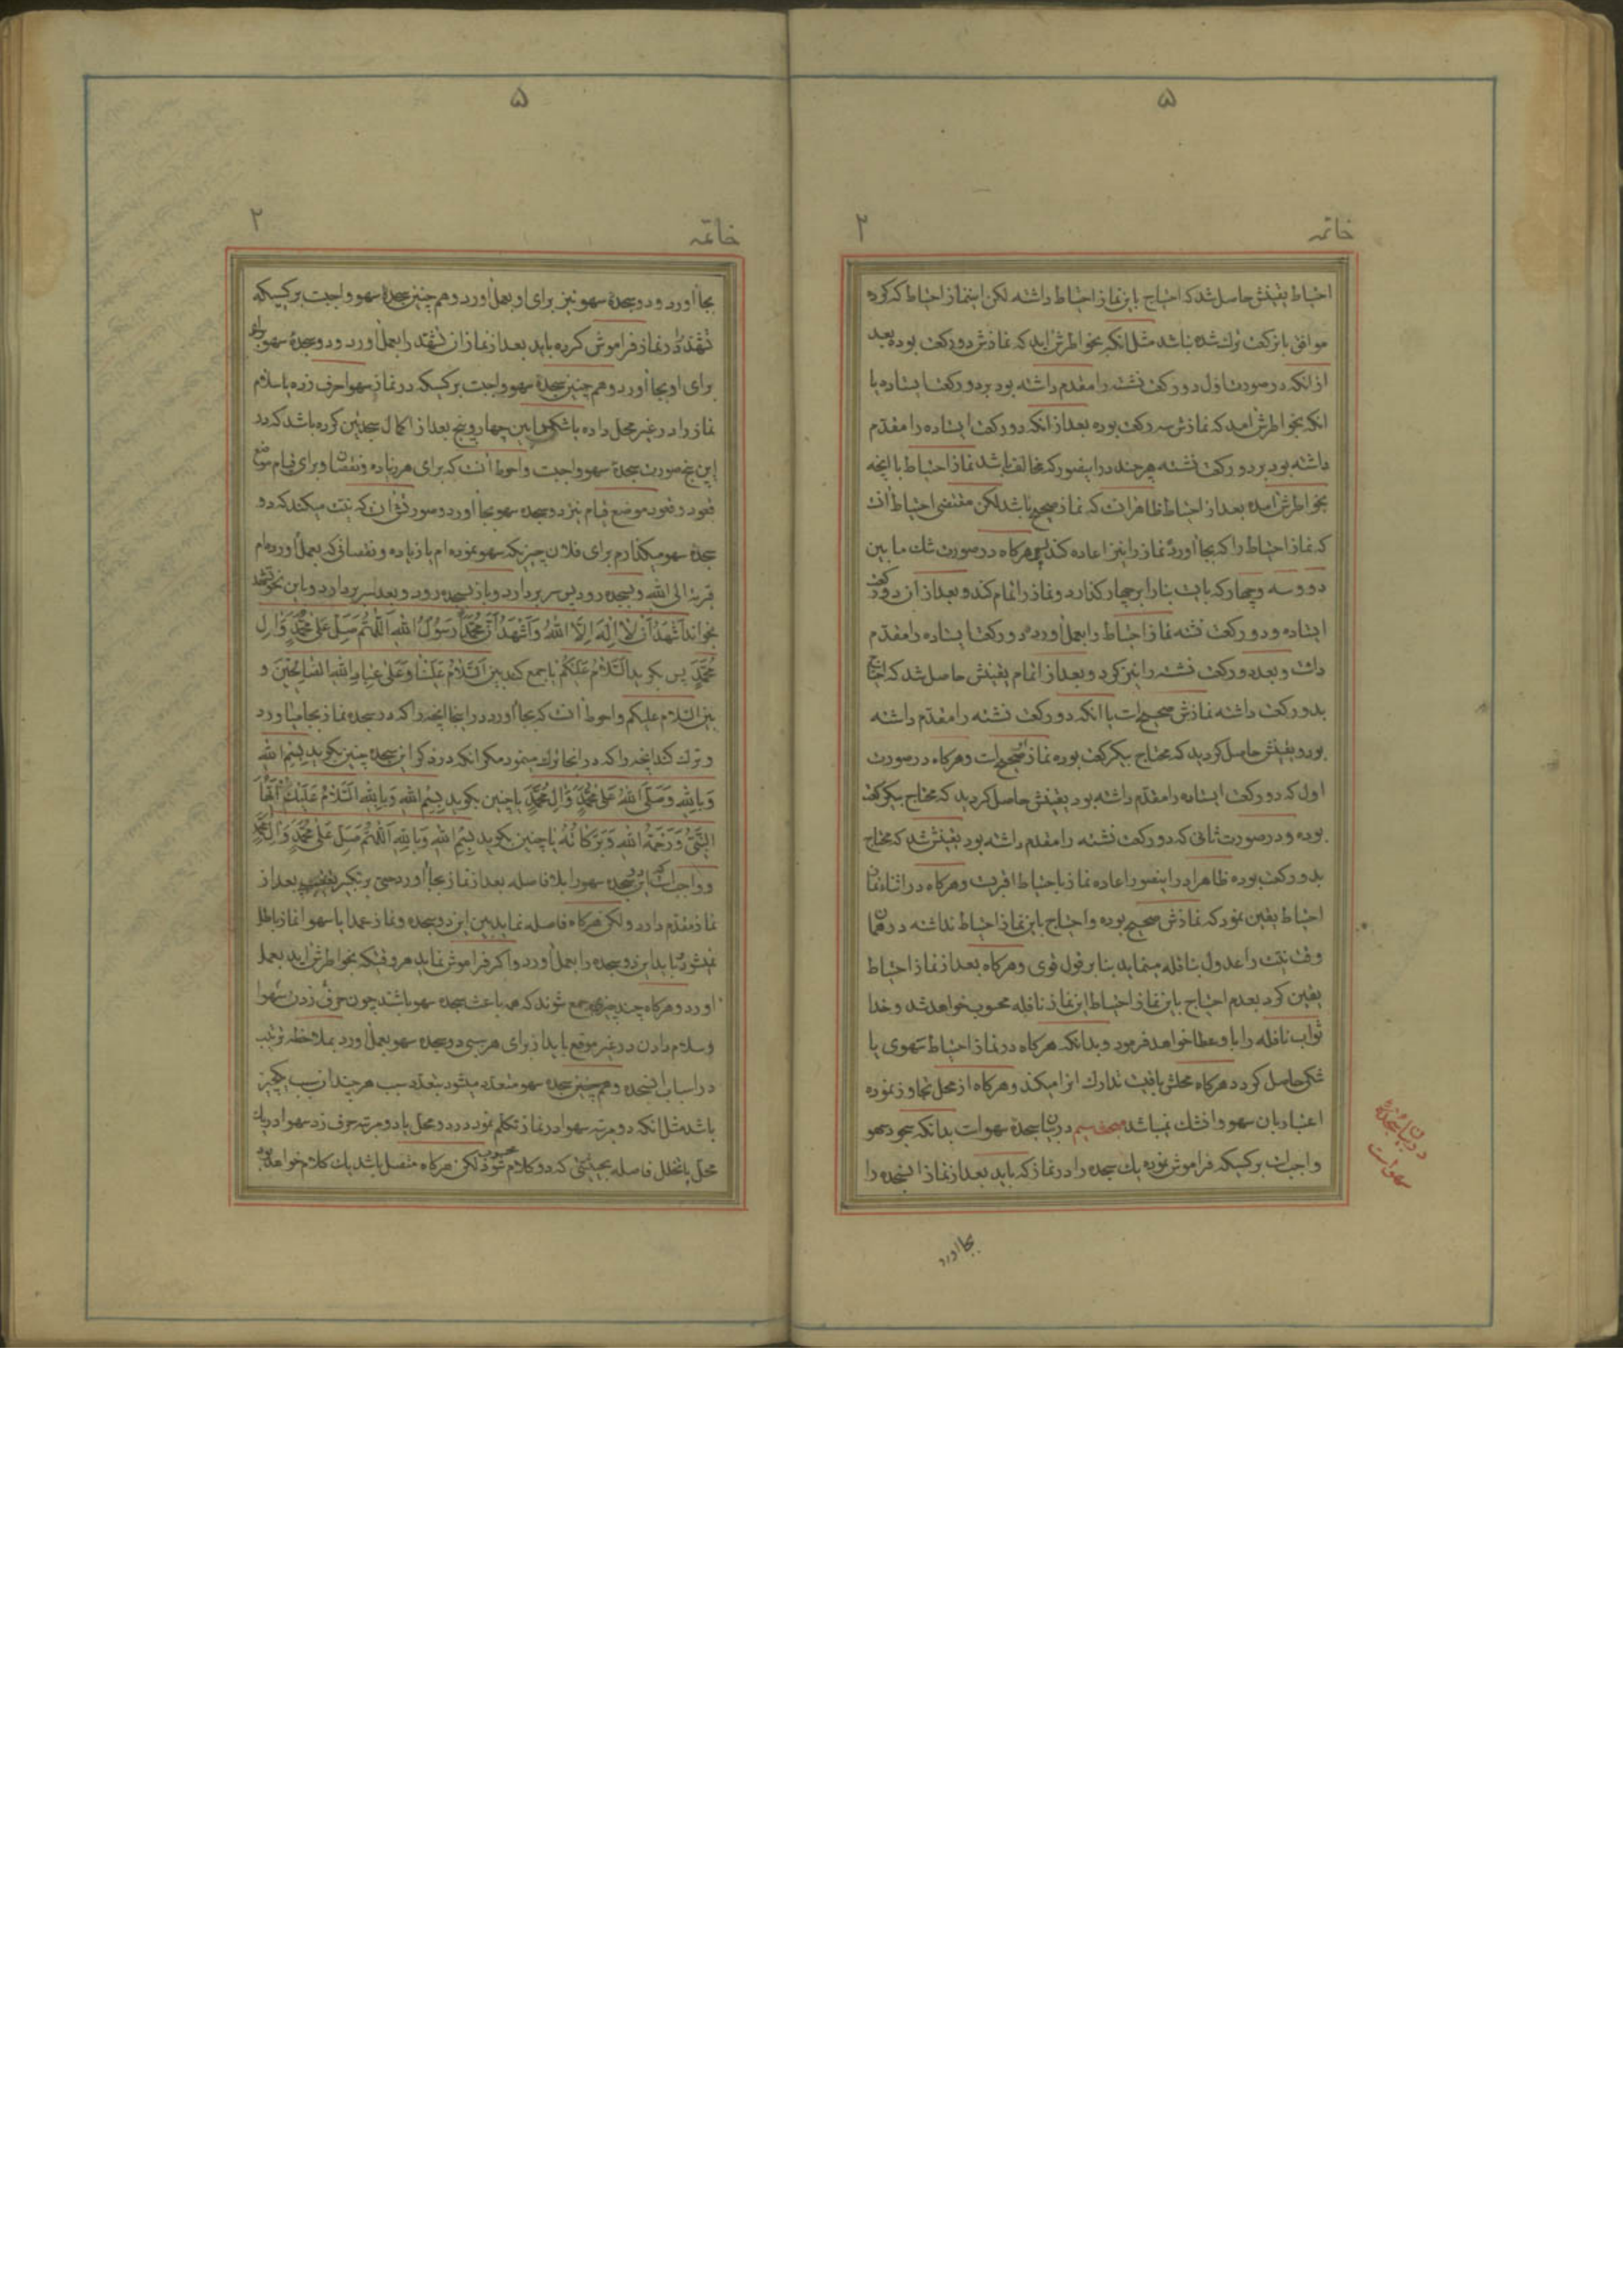 ۵
خاتمه
۲
احتیاط یقینش حاصل شد که احتیاج باین نماز احتیاط داشته لکن اینماز احتیاط که کرده
موافق با رکعت ترک شده نباشد مثل انکه بخواطرش اید که نمازش دو رکعت بوده بعد
از انکه در صورت اول دو رکعت نشسته را مقدم داشته بود بر دو رکعت ایستاده یا
انکه بخواطرش امد که نمازش سه رکعت بوده بعد از انکه دو رکعت ایستاده را مقدم
داشته بود بر دو رکعت نشسته هر چند در اینصورکه مخالف باشد نماز احتیاط با انچه
بخواطرش امده بعد از احتیاط ظاهر انست که نماز صحیح باشد لکن مقتضی احتیاط انست
که نماز احتیاط را که بجا اورد نماز را نیز اعاده کند پس هرکاه در صورت شک ما بین
دو و سه و چهار که بایست بنا را بر چهار کذارد و نماز را تمام کند و بعد از ان دو رکعت
ایستاده و دو رکعت نشسته نماز احتیاط را بعمل اورد دو رکعت ایستاده را مقدم
داشت و بعد دو رکعت نشسته را نیز کرد و بعد از اتمام یقینش حاصل شد که احتیاج
بدو رکعت داشته نمازش صحیح است یا انکه دو رکعت نشسته را مقدم داشته
بود و یقینش حاصل کردید که محتاج بیکرکعت بوده نماز صحیح است و هرکاه در صورت
اول که دو رکعت ایستاده را مقدم داشته بود یقینش حاصل کردید که محتاج بیکرکعت
بوده و در صورت ثانی که دو رکعت نشسته را مقدم داشته بود یقینش شد که محتاج
بدو رکعت بوده ظاهرا در اینصور اعاده نماز باحتیاط اقربست و هرکاه در اثناء نماز
احتیاط یقین نمود که نمازش صحیح بوده و احتیاج باین نماز احتیاط نداشته در همان
وقت نیت را عدول بنافله مینماید بنا بر قول قوی و هرکاه بعد از نماز احتیاط
یقین کرد بعدم احتیاج باین نماز احتیاط این نماز نافله محسوب خواهد شد و خدا
ثواب نافله را باو عطا خواهد فرمود و بدانکه هرکاه در نماز احتیاط سهوی یا
شکی حاصل کردد هرکاه محلش باقیست تدارک انرا میکند و هرکاه از محل تجاوز نموده
اعتبار بان سهو و انشک نمیباشد در بیان سجدهٔ سهو است بدانکه سجود سهو
واجب است بر کسیکه فراموش نموده یک سجده را در نماز که باید بعد از نماز انسجده را
در بیان سجدهٔ
سهو است
بجا اورد
۵
خاتمه
۲
بجا اورد و دو سجدهٔ سهو نیز برای او بعمل اورد و هم چنین سجدهٔ سهو واجبست بر کسیکه
تشهد را در نماز فراموش کرده باید بعد از نماز ان تشهد را بعمل اورد و دو سجدهٔ سهو برای
برای او بجا اورد و هم چنین سجدهٔ سهو واجبست بر کسیکه در نماز سهوا حرف زده یا سلام
نماز را در غیر محل داده یا شک ما بین چهار و پنج بعد از اکمال سجدتین کرده باشد که در
این پنج صورت سجدهٔ سهو واجبست و احوط انست که برای هر زیاده و نقصان و برای قیام موضع
قعود و قعود موضع قیام نیز دو سجدهٔ سهو بجا اورد و صورتش ان که نیت میکند که دو
سجدهٔ سهو میکذارم برای فلان چیزیکه سهو نموده ام یا زیاده و نقصانی که بعمل اورده ام
قربة الی الله و بسجده رود پس سر بردارد و باز بسجده رود و بعد سر بردارد و باین نحو تشهد
بخواند اَشْهَدُ اَنْ لا اِلهَ اِلَّا اللهُ وَاَشْهَدُ اَنَّ مُحَمَّداً رَسُولُ اللهِ اَللّهُمَّ صَلِّ عَلی مُحَمَّدٍ وَآلِ
مُحَمَّدٍ پس بکوید اَلسَّلامُ عَلَیْکُمْ یا جمع کند بین اَلسَّلامُ عَلَیْنا وَعَلی عِبادِ اللهِ الصّالِحینَ و
بین السلام علیکم و احوط انست که بجا اورد در اینجا انچه را که در سجده نماز بجا میاورد
و ترک کند انچه را که در انجا ترک مینمود مکر انکه در ذکر این سجده چنین بکوید بِسْمِ اللهِ
وَبِاللهِ وَصَلَّی اللهُ عَلی مُحَمَّدٍ وَآلِ مُحَمَّدٍ یا چنین بکوید بِسْمِ اللهِ وَبِاللهِ اَلسَّلامُ عَلَیْکَ اَیُّهَا
النَّبِیُّ وَرَحْمَةُ اللهِ وَبَرَکاتُهُ یا چنین بکوید بِسْمِ اللهِ وَبِاللهِ اَللّهُمَّ صَلِّ عَلی مُحَمَّدٍ وَآلِ مُحَمَّدٍ
و واجب است که این دو سجده سهو را بلا فاصله بعد از نماز بجا اورد حتی بر تکبیر بعد از
نماز مقدم دارد ولکن هرکاه فاصله نماید بین این دو سجده و نماز عمدا یا سهوا نماز باطل
نمیشود باید این دو سجده را بعمل اورد و اکر فراموش نماید هر وقتیکه بخواطرش اید بعمل
اورد و هرکاه چند چیز جمع شوند که همه باعث سجده سهو باشند چون حرف زدن سهوا
و سلام دادن در غیر موقع باید از برای هر سببی دو سجده سهو بعمل اورد بملاحظه ترتیب
در اسباب انسجده و هم چنین سجده سهو متعدد میشود بتعدد سبب هر چند ان سبب یکچیز
باشد مثل انکه دو مرتبه سهوا در نماز تکلم نمود در دو محل یا دو مرتبه حرف زد سهوا در یک
محل با تخلل فاصله بحیثیتی که دو کلام محسوب شود لکن هرکاه متصل باشد یک کلام خواهد بود